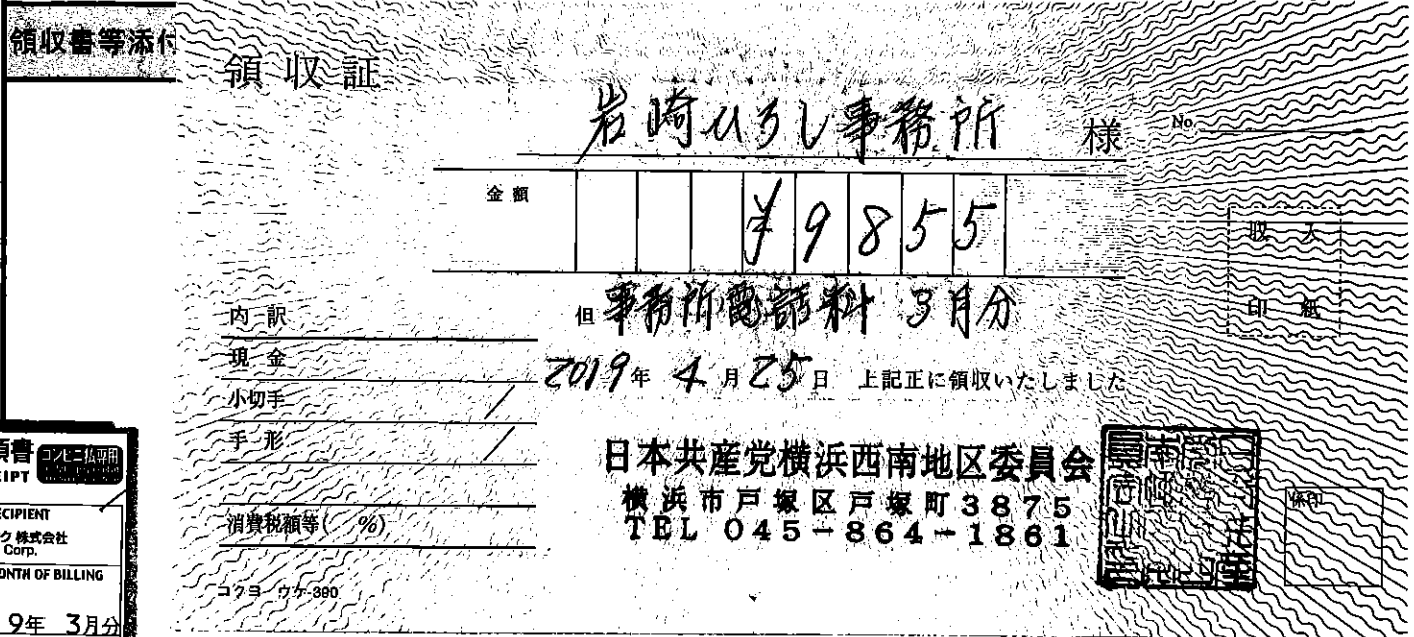 領収書等添付
領収証
岩崎ひろし事務所 様
No.
金額
¥9855
収入
印紙
但 事務所電話料 3月分
内訳
現金
小切手
手形
消費税額等( %)
2019年 4月25日 上記正に領収いたしました
日本共産党横浜西南地区委員会
横浜市戸塚区戸塚町3875
TEL 045-864-1861
係印
コクヨ ウケ-390
領書
コンビニ払専用
EIPT
ECIPIENT
ク 株式会社
Corp.
ONTH OF BILLING
9年 3月分